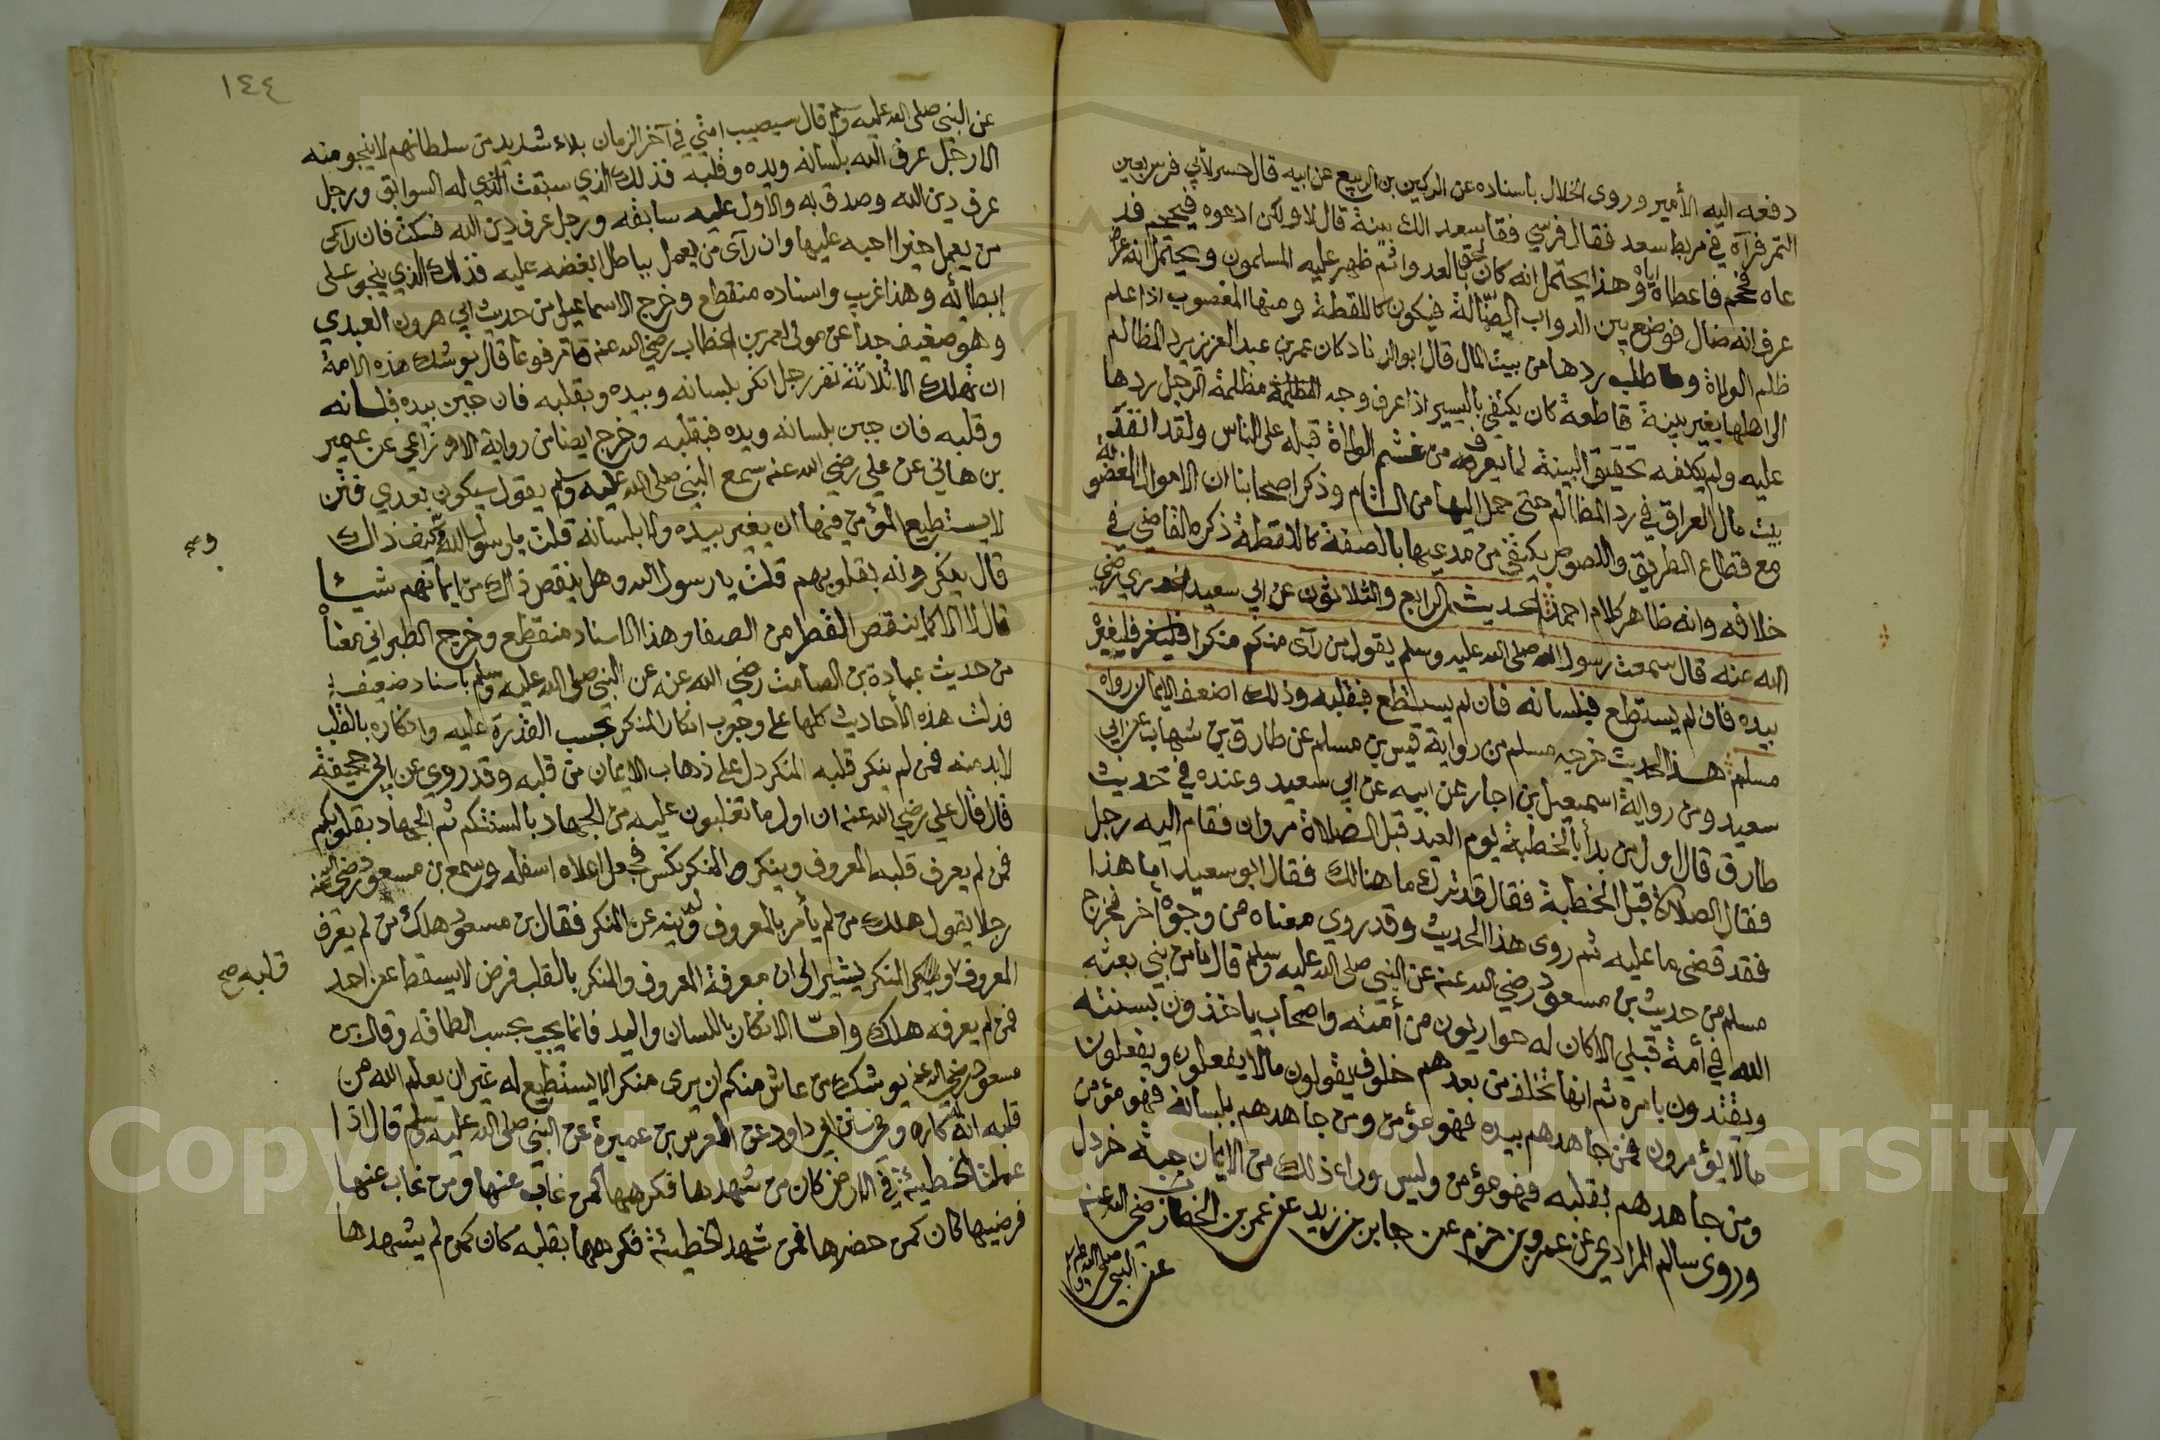 دفعه اليه الأمير وروى الخلال باسناده عن الركين بن الربيع عن ابيه قال حسر لأبي فرس بعين
التمر فرآه في مربط سعد فقال فرسي فقا سعد الك بينة قال لا ولكن ادعوه فيحمحم فد
عاه فحمحم فاعطاه اياه وهذا يحتمل انه كان لحق بالعدو اثم ظهر عليه المسلمون ويحتمل انه
عرف انه ضال فوضع بين الدواب الضالة فيكون كاللقطة ومنها المغصوب اذا علم
ظلم الولاة وطلب ردها من بيت المال قال ابو الزناد كان عمر بن عبد العزيز يرد المظالم
الى اهلها بغير بينة قاطعة كان يكتفي باليسير اذا عرف وجه مظلمة الرجل ردها
عليه ولم يكلفه تحقيق البينة لما يعرف من غشم الولاة قبله على الناس ولقد انفد
بيت مال العراق في رد المظالم حتى حمل اليها من الشام وذكر اصحابنا ان الاموال المغصوبة
مع قطاع الطريق واللصوص يكتفى من مدعيها بالصفة كاللقطة ذكره القاضي في
خلافه وانه ظاهر كلام احمد الحديث الرابع والثلاثون عن ابي سعيد الخدري رضي
الله عنه قال سمعت رسول الله صلى الله عليه وسلم يقول من رآى منكم منكرا فليغيره
بيده فان لم يستطع فبلسانه فان لم يستطع فبقلبه وذلك اضعف الايمان رواه
مسلم هذا الحديث خرجه مسلم من رواية قيس بن مسلم عن طارق بن شهاب عن ابي
سعيد ومن رواية اسمعيل بن اجار عن ابيه عن ابي سعيد وعنده في حديث
طارق قال اول من بدأ بالخطبة يوم العيد قبل الصلاة مروان فقام اليه رجل
فقال الصلاة قبل الخطبة فقال قد ترك ما هنالك فقال ابو سعيد اما هذا
فقد قضى ما عليه ثم روى هذا الحديث وقد روي معناه من وجوه أخر فخرج
مسلم من حديث بن مسعود رضي الله عنه عن النبي صلى الله عليه وسلم قال ما من نبي بعثه
الله في أمة قبلي الا كان له حواريون من أمته واصحاب ياخذون بسنته
ويقتدون بامره ثم انها تخلف من بعدهم خلوف يقولون مالا يفعلون ويفعلون
مالا يؤمرون فمن جاهدهم بيده فهو مؤمن ومن جاهدهم بلسانه فهو مؤمن
ومن جاهدهم بقلبه فهو مؤمن وليس وراء ذلك من الايمان حبة خردل
وروى سالم المرادي عن عمرو بن خرم عن جابر بن زيد عن عمر بن الخطاب رضي الله عنه
عن النبي صلى الله عليه وسلم
١٤٤
عن النبي صلى الله عليه وسلم قال سيصيب امتي في آخر الزمان بلاء شديد من سلطانهم لا ينجو منه
الا رجل عرف الله بلسانه ويده وقلبه فذلك الذي سبقت له السوابق ورجل
عرف دين الله وصدق به والاول عليه سابقه ورجل عرف دين الله فسكت فان رآى
من يعمل خيرا احبه عليها وان رآى من يعمل بباطل ابغضه عليه فذلك الذي ينجو على
إبطائه وهذا غريب واسناده منقطع وخرج الاسماعيلي من حديث ابي هرون العبدي
وهو ضعيف جدا عن مولى لعمر بن الخطاب رضي الله عنه مرفوعا قال يوشك هذه الامة
ان تهلك الا ثلاثة نفر رجل انكر بلسانه وبيده وبقلبه فان جبن بيده فبلسانه
وقلبه فان جبن بلسانه ويده فبقلبه وخرج ايضا من رواية الاوزاعي عن عمير
بن هاني عن علي رضي الله عنه سمع النبي صلى الله عليه وسلم يقول سيكون بعدي فتن
لا يستطيع المؤمن فيها ان يغير بيده ولا بلسانه قلت يا رسول الله وكيف ذاك
قال ينكرونه بقلوبهم قلت يا رسول الله وهل ينقص ذلك من ايمانهم شيئا
قال لا الا كما ينقص القطر من الصفا وهذا الاسناد منقطع وخرج الطبراني معناه
من حديث عبادة بن الصامت رضي الله عنه عن النبي صلى الله عليه وسلم باسناد ضعيف
فدلت هذه الأحاديث كلها على وجوب انكار المنكر بحسب القدرة عليه وانكاره بالقلب
لا بد منه فمن لم ينكر قلبه المنكر دل على ذهاب الايمان من قلبه وقد روي عن ابي جحيفة
قال قال علي رضي الله عنه ان اول ما تغلبون عليه من الجهاد بالسنتكم ثم الجهاد بقلوبكم
فمن لم يعرف قلبه المعروف وينكر المنكر نكس فجعل اعلاه اسفله وسمع بن مسعود رضي الله عنه
رجلا يقول هلك من لم يأمر بالمعروف ولم ينه عن المنكر فقال بن مسعود هلك من لم يعرف
قلبه صح
المعروف والمنكر يشير الى ان معرفة المعروف والمنكر بالقلب فرض لا يسقط عن احد
فمن لم يعرفه هلك وامّا الانكار باللسان واليد فانما يجب بحسب الطاقه وقال بن
مسعود رضي الله عنه يوشك من عاش منكم ان يرى منكرا لا يستطيع له غير ان يعلم الله من
قلبه انه له كاره وفي سنن ابي داود عن العرس بن عميرة عن النبي صلى الله عليه وسلم قال اذا
عملت الخطيئة في الارض كان من شهدها فكرهها كمن غاب عنها ومن غاب عنها
فرضيها كان كمن حضرها فمن شهد الخطيئة فكرهها بقلبه كان كمن لم يشهدها
Copyright © King Saud University